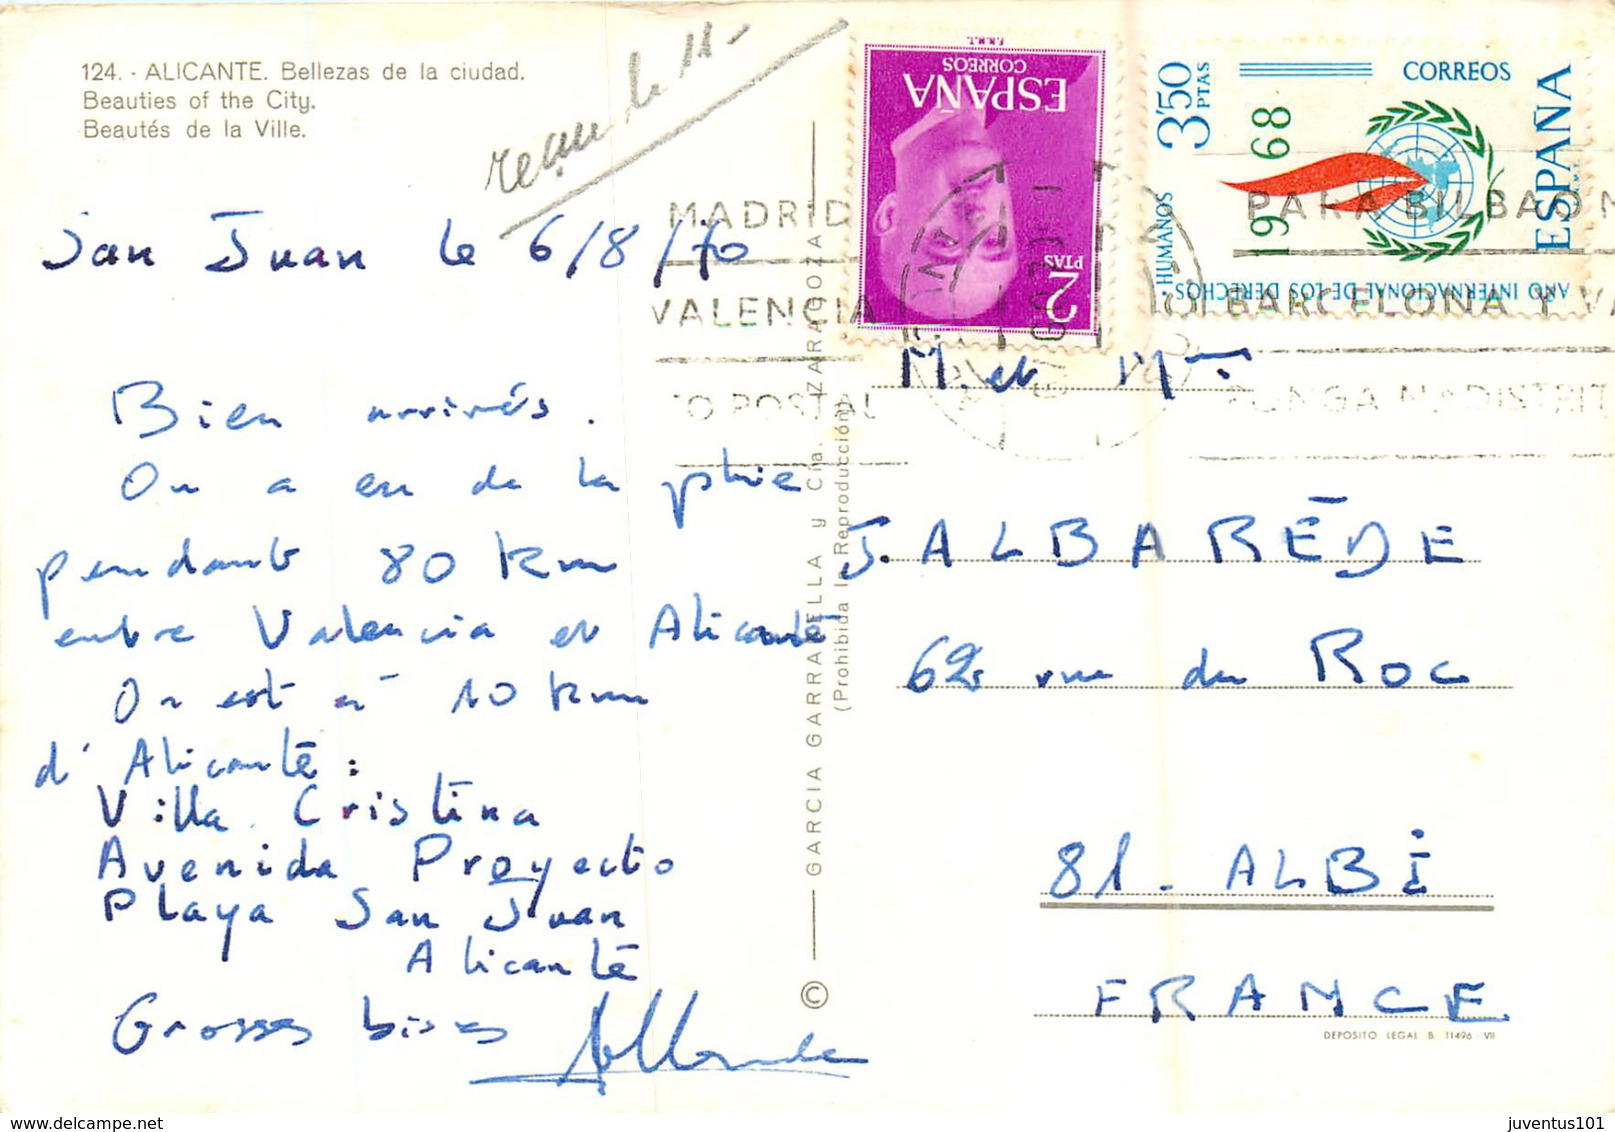 124. - ALICANTE. Bellezas de la ciudad.
Beauties of the City.
Beautés de la Ville.
reçu le 11-
San Juan le 6/8/70
Bien arrivés.
On a eu de la pluie
pendant 80 km
entre Valencia et Alicante
On est à 10 km
d'Alicante :
Villa Cristina
Avenida Proyecto
Playa San Juan
Alicante
Grosses bises
GARCIA GARRABELLA y Cía. - ZARAGOZA
(Prohibida la Reproducción)
©
F.N.M.T.
ESPAÑA
CORREOS
2 PTAS
3'50 PTAS
CORREOS
1968
ESPAÑA
AÑO INTERNACIONAL DE LOS DERECHOS HUMANOS
MADRID
VALENCIA
TO POSTAL
PARA BILBAO
BARCELONA Y VA
PONGA Nº DISTRIT
M. et Mme
J. ALBARÈDE
62 rue du Roc
81. ALBI
FRANCE
DEPOSITO LEGAL B. 11496 - VII
juventus101